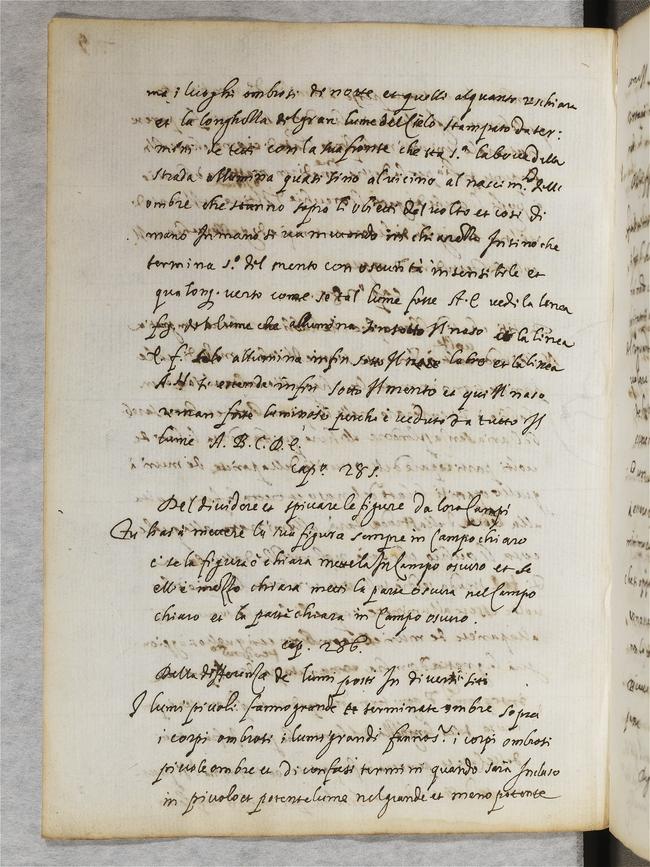 ma i luoghi ombrosi di notte et quelli alquanto reschiara
et la longholla del gran lume del Cielo stampato da ter:
mini de tetti con la sua fronte che sta s.ª la bocca della
strada allumina quasi sino al vicino al nascim.to delle
ombre che stanno sopra li obietti del volto et così di
mano In mano si va mutando in chiarella Insino che
termina s.º del mento con oscurità insensibile et
qualonq. verso come se tal lume fosse A. E vedi la linea
f. g. del lume che allumina sin sotto Il naso et la linea
C. f. solo allumina infin sotto Il naso labro et la linea
A. H. si estende infin sotto Il mento et qui Il naso
riman forte luminoso perche è veduto da tutto Il
lume A. B. C. D. E.
Cap.º 285.
Del dividere et spicare le figure da loro Campi
Tu hai à mettere la tua figura sempre in Campo chiaro
e se la figura è chiara mettela In Campo oscuro et se
ell è chiara metti la parte oscura nel Campo
chiaro et la parte chiara in Campo oscuro.
cap. 286.
Della differenza de lumi posti In diversi siti
I lumi picoli fanno grande et terminate ombre sopra
i corpi ombrosi i lumi grandi fanno s.ª i corpi ombrosi
picole ombre et di confusi termini quando sarà Incluso
in picolo et potente lume nel grande et meno potente